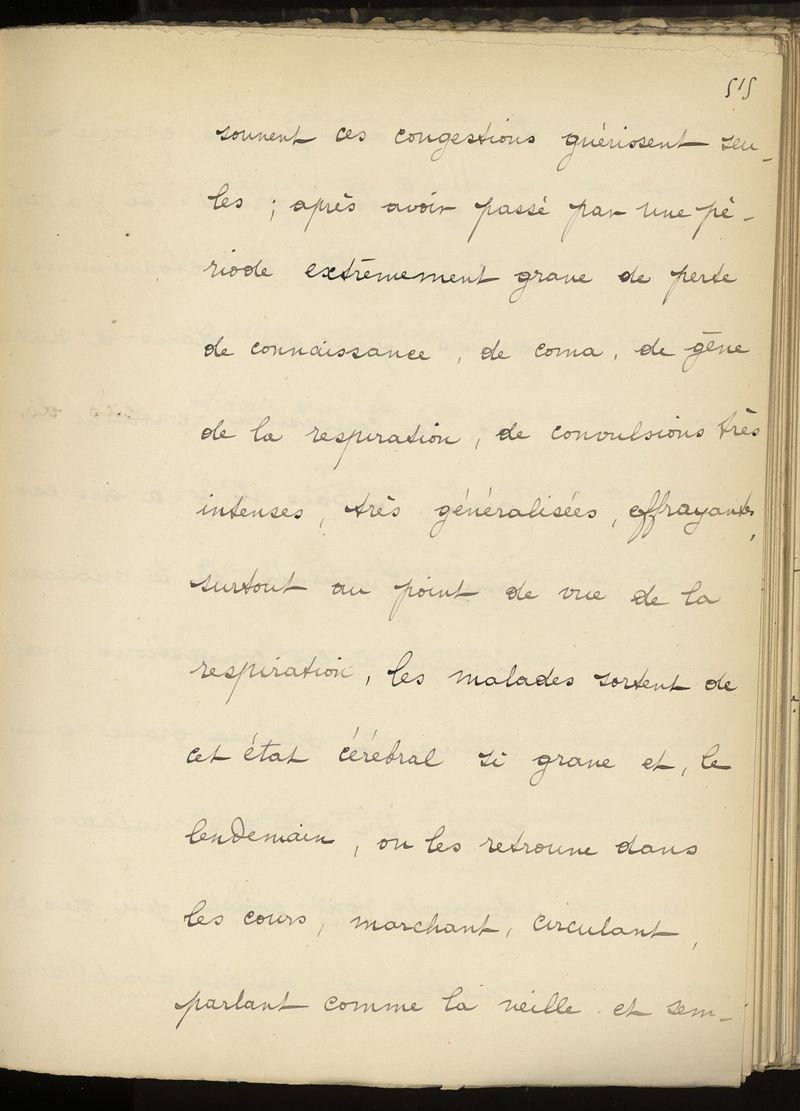 515
souvent ces congestions guérissent seu-
les ; après avoir passé par une pé-
riode extrêmement grave de perte
de connaissance, de coma, de gêne
de la respiration, de convulsions très
intenses, très généralisées, effrayantes,
surtout au point de vue de la
respiration, les malades sortent de
cet état cérébral si grave et, le
lendemain, on les retrouve dans
les cours, marchant, circulant,
parlant comme la veille et sem-